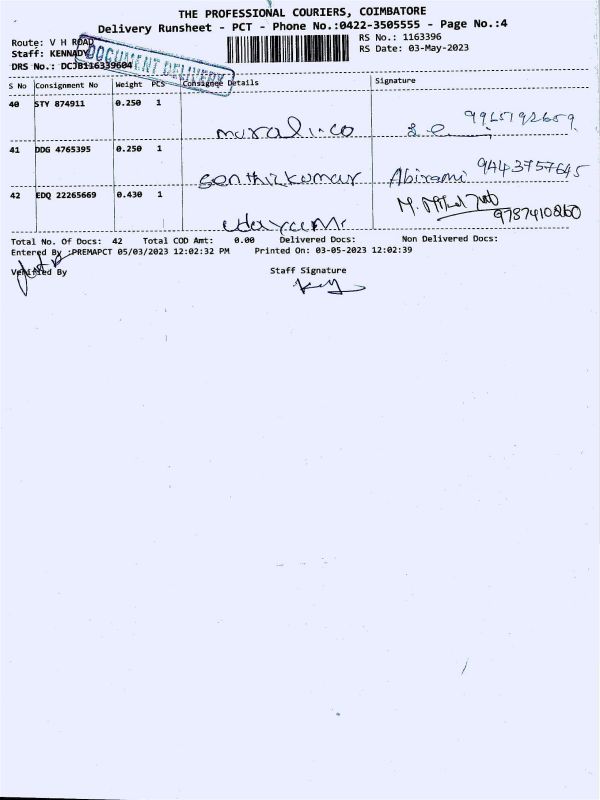 THE PROFESSIONAL COURIERS, COIMBATORE
Delivery Runsheet - PCT - Phone No.:0422-3505555 - Page No.:4
Route: V H ROAD
Staff: KENNADY
DRS No.: DCJB116339604
DOCUMENT DELIVERY
RS No.: 1163396
RS Date: 03-May-2023
S No Consignment No Weight PCS Consignee Details Signature
40 STY 874911 0.250 1
9965192659
41 DDG 4765395 0.250 1
senthilkumar Abirami 9443757645
42 EDQ 22265669 0.430 1
Total No. Of Docs: 42 Total COD Amt: 0.00 Delivered Docs: Non Delivered Docs:
Entered By :PREMAPCT 05/03/2023 12:02:32 PM Printed On: 03-05-2023 12:02:39
Verified By Staff Signature